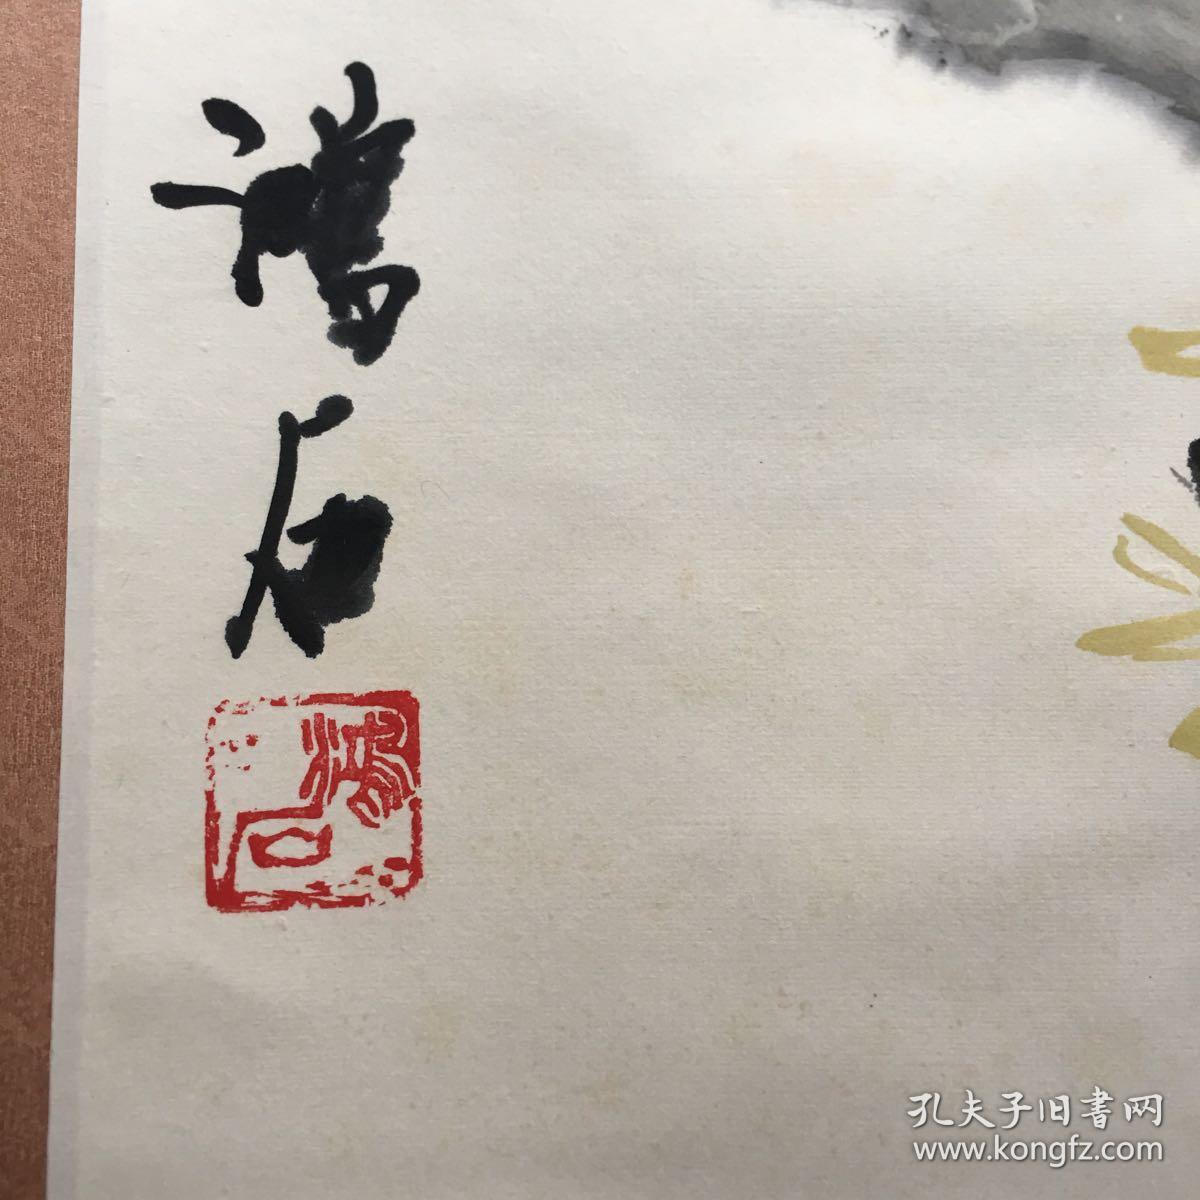 鴻石
鴻石
孔夫子旧書网
www.kongfz.com